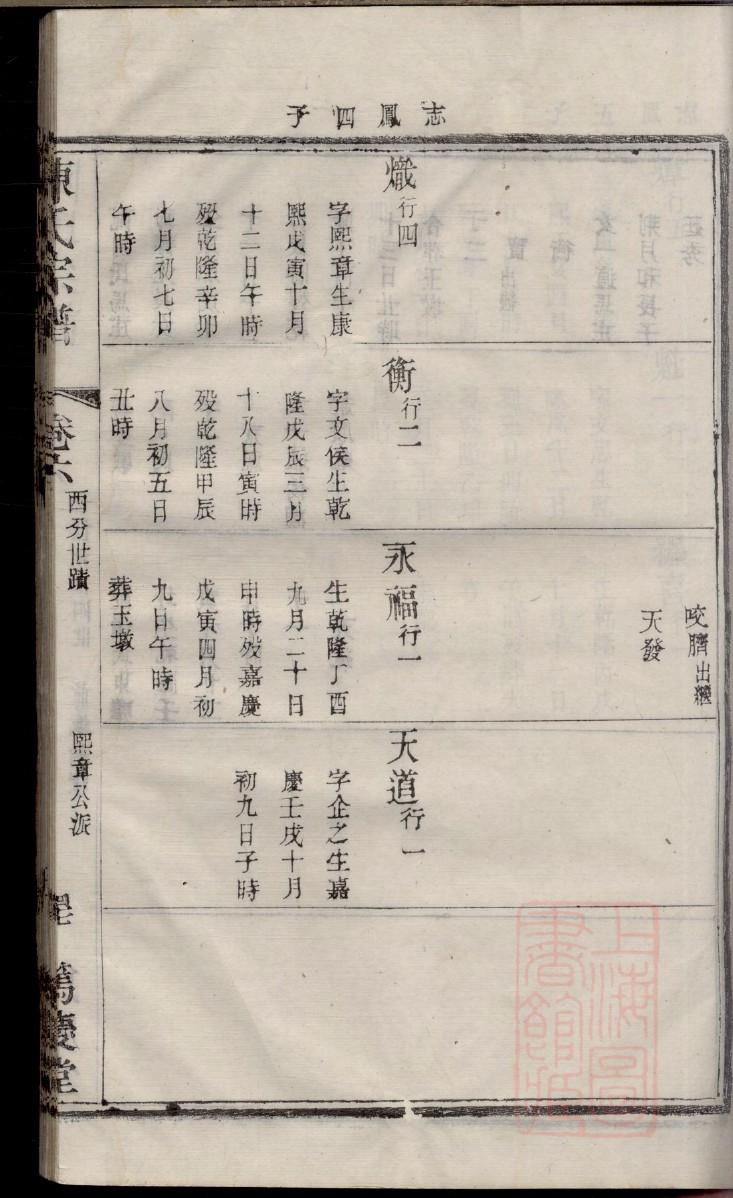 志鳳四子
咬臍出繼
天發
熾行四
字熙章生康
熙戊寅十月
十二日午時
歿乾隆辛卯
七月初七日
午時
衡行二
字文侯生乾
隆戊辰三月
十八日寅時
歿乾隆甲辰
八月初五日
丑時
永福行一
生乾隆丁酉
九月二十日
申時歿嘉慶
戊寅四月初
九日午時
葬玉墩
天道行一
字企之生嘉
慶壬戌十月
初九日子時
陳氏宗譜
卷六
西分世蹟
熙章公派
篤慶堂
上海圖
書館藏